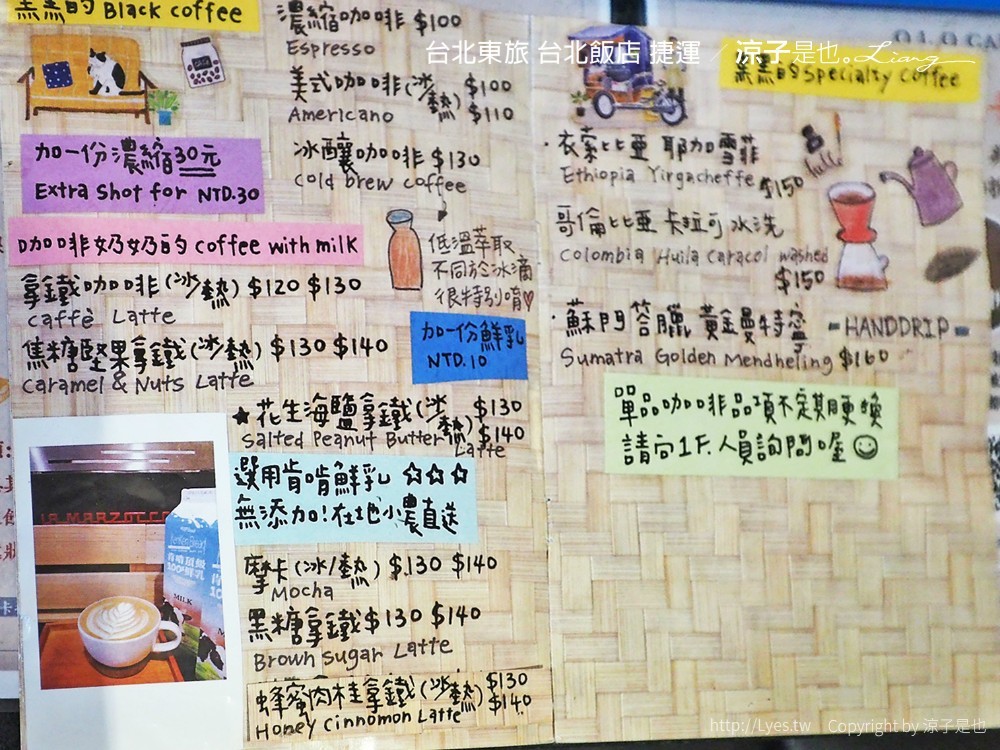 黑黑的 Black coffee
濃縮咖啡 $100
Espresso
美式咖啡(冰/熱) $100 $110
Americano
冰釀咖啡 $130
Cold brew coffee
低溫萃取
不同於冰滴
很特別唷♡
加一份濃縮30元
Extra Shot for NTD.30
咖啡奶奶的 coffee with milk
拿鐵咖啡(冰/熱) $120 $130
Caffè Latte
焦糖堅果拿鐵(冰/熱) $130 $140
Caramel & Nuts Latte
加一份鮮乳
NTD.10
★花生海鹽拿鐵(冰/熱) $130 $140
Salted Peanut Butter Latte
選用肯啃鮮乳 ☆☆☆
無添加!在地小農直送
摩卡(冰/熱) $130 $140
Mocha
黑糖拿鐵 $130 $140
Brown Sugar Latte
蜂蜜肉桂拿鐵(冰/熱) $130 $140
Honey Cinnomon Latte
LA MARZOCCO
100%鮮乳
MILK
台北東旅 台北飯店 捷運 / 涼子是也。Liang
黑黑的 Specialty Coffee
·衣索比亞 耶加雪菲
Ethiopia Yirgacheffe $150
哥倫比亞 卡拉可 水洗
Colombia Huila Caracol washed
$150
·蘇門答臘 黃金曼特寧
Sumatra Golden Mendheling $160
-HANDDRIP-
單品咖啡品項不定期更換
請向1F.人員詢問喔☺
http://Lyes.tw Copyright by 涼子是也